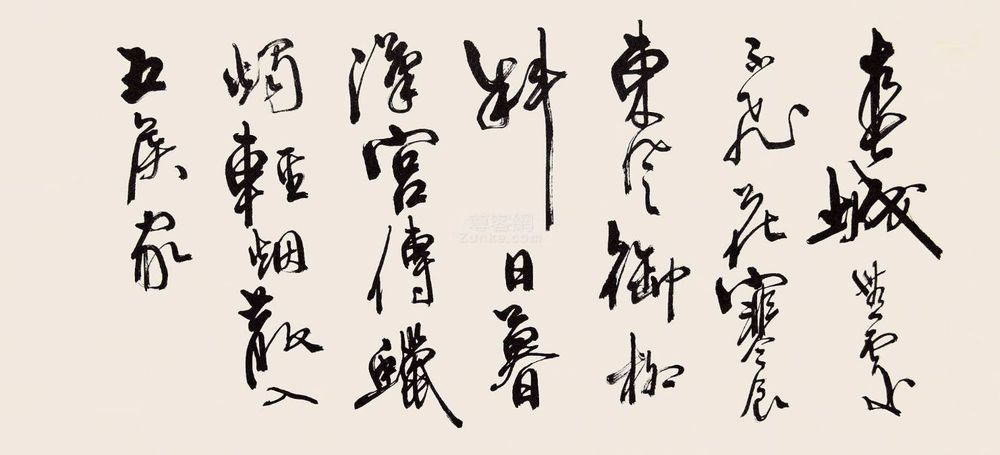 春城無處
不飛花寒食
東風御柳
斜日暮
漢宮傳蠟
燭輕烟散入
五侯家
尊客網
Zunke.com